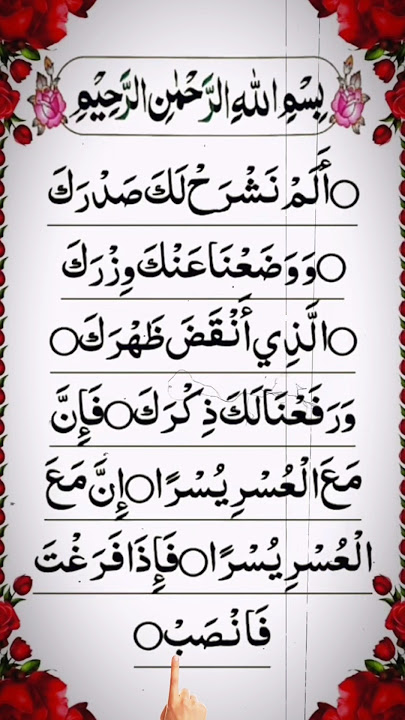 بِسْمِ اللهِ الرَّحْمٰنِ الرَّحِيْمِ
○أَلَمْ نَشْرَحْ لَكَ صَدْرَكَ
○وَوَضَعْنَا عَنْكَ وِزْرَكَ
○الَّذِي أَنْقَضَ ظَهْرَكَ○
وَرَفَعْنَا لَكَ ذِكْرَكَ○فَإِنَّ
مَعَ الْعُسْرِ يُسْرًا○إِنَّ مَعَ
الْعُسْرِ يُسْرًا○فَإِذَا فَرَغْتَ
فَانْصَبْ○